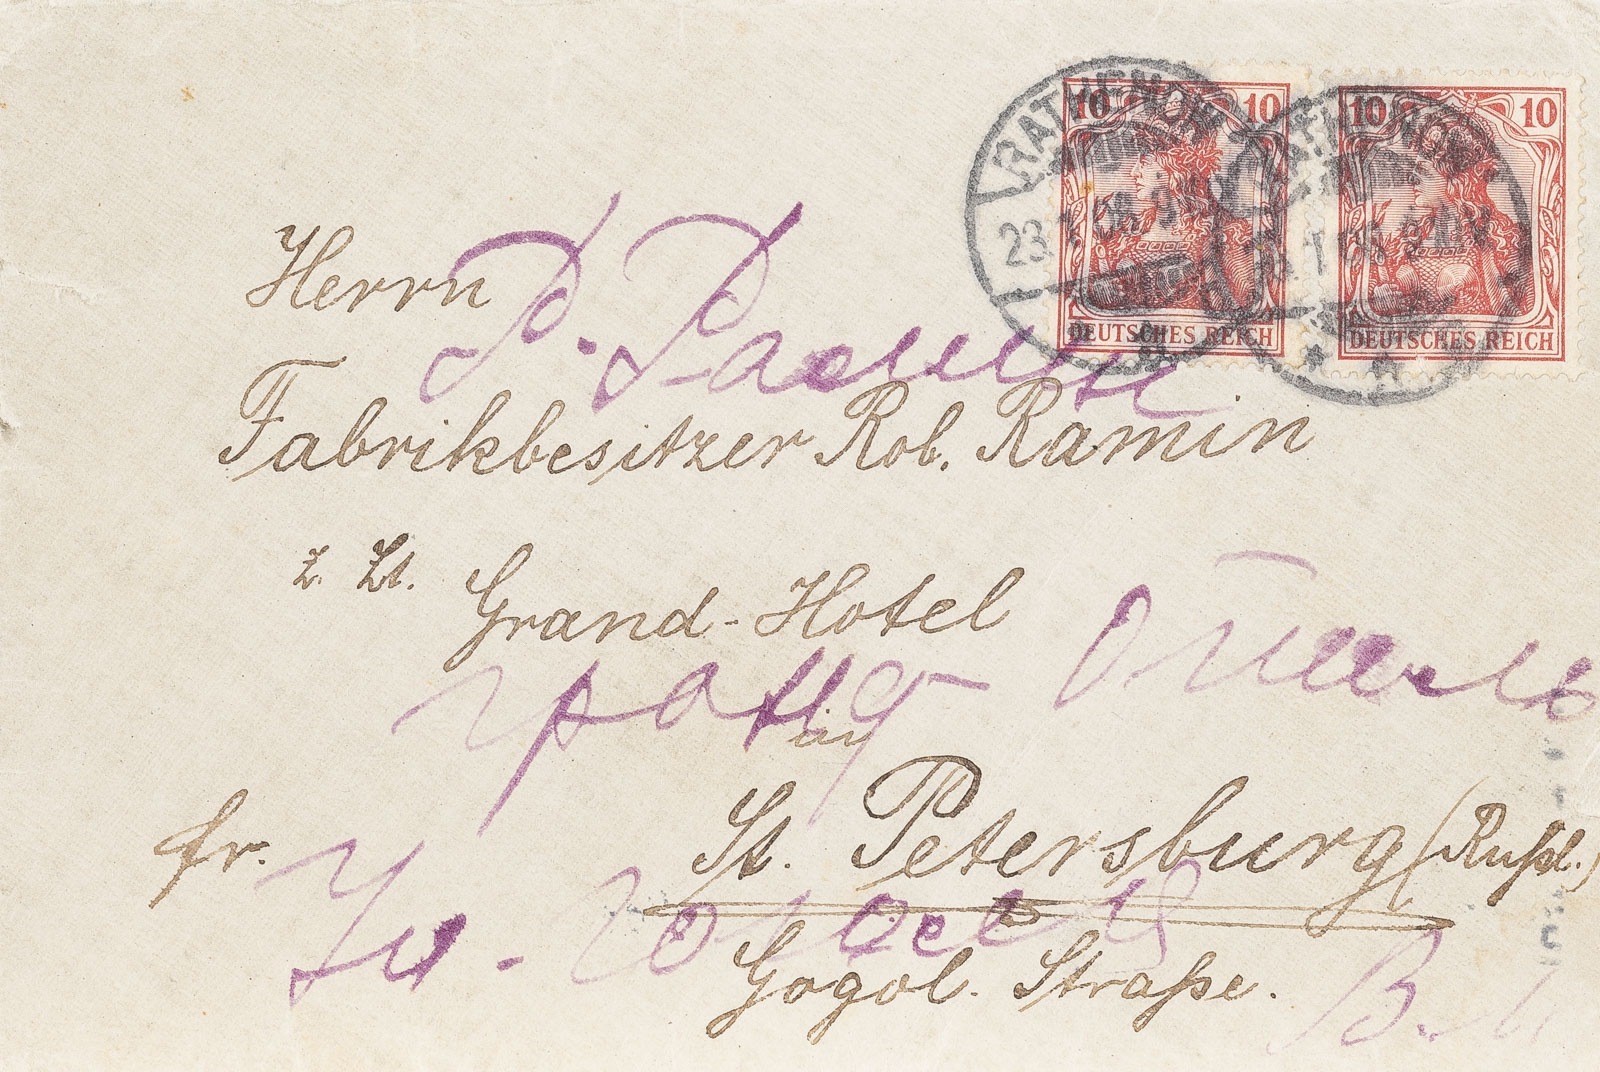 10 10 10 10
RATHENOW
23.1.08.
DEUTSCHES REICH DEUTSCHES REICH
Herrn
Р. Рамин
Fabrikbesitzer Rob. Ramin
z. Zt. Grand-Hotel
гранд
in
St. Petersburg (Rußl.)
fr.
Gogol. Straße.